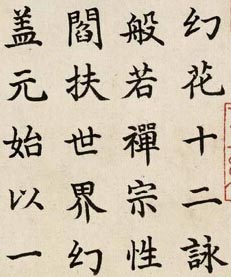 幻花十二詠
般若禪宗性
閻扶世界幻
盖元始以一